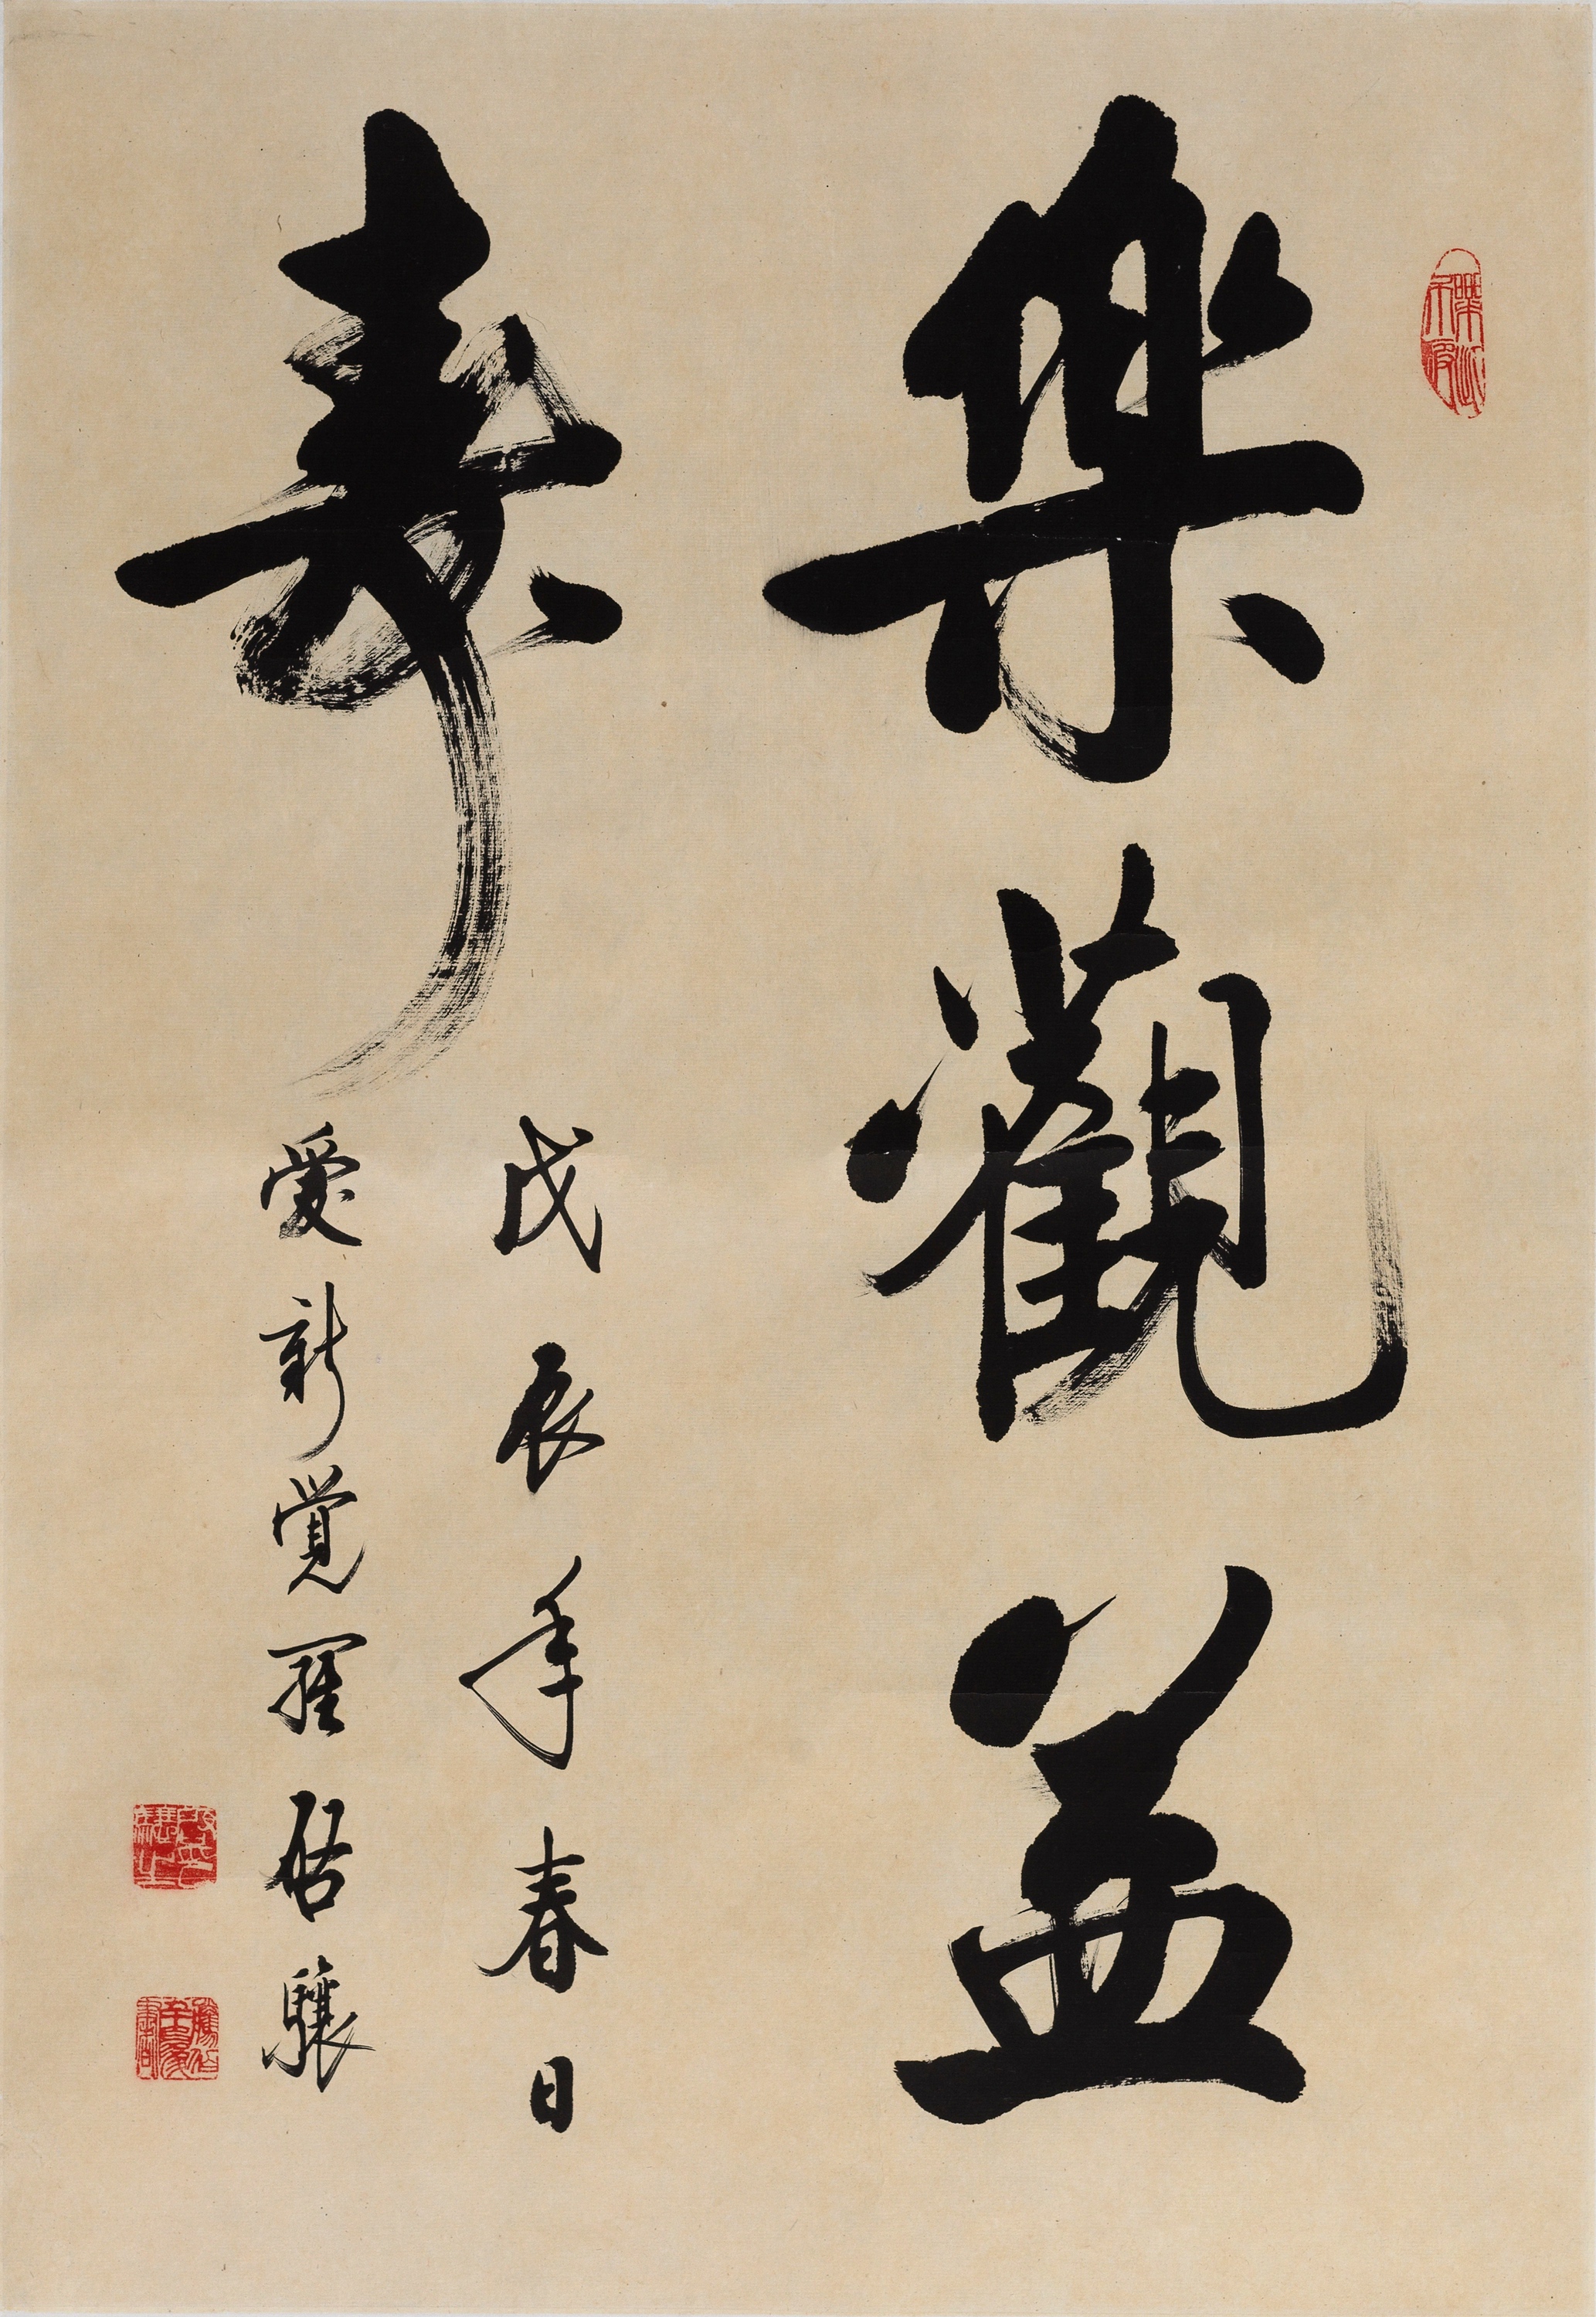 樂觀益
壽
戊辰年春日
愛新覚羅啓驤